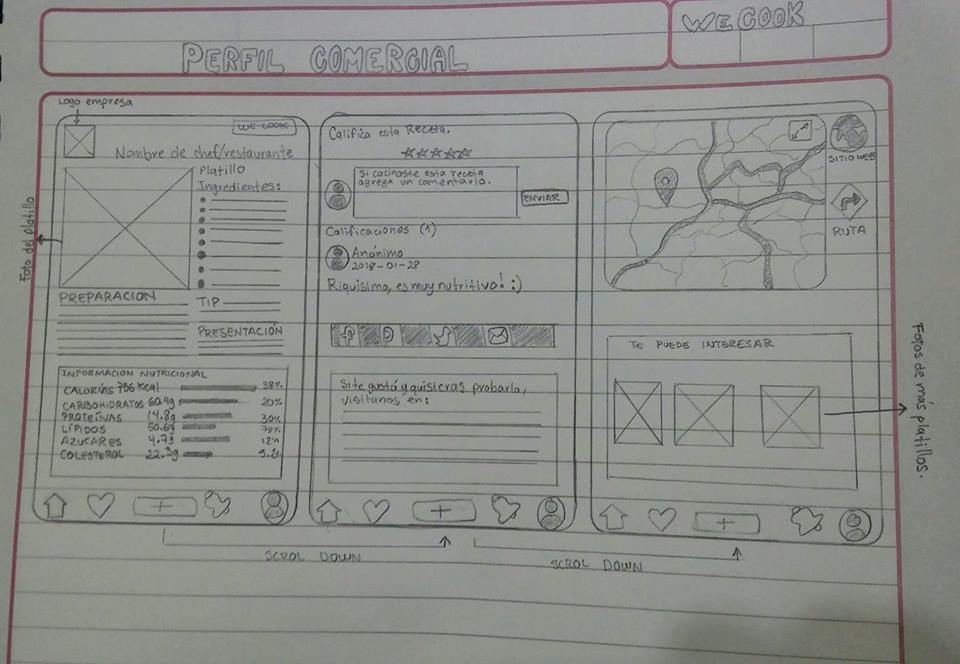 WE COOK
PERFIL COMERCIAL
Logo empresa
WE COOK
Nombre de chef/restaurante
Platillo
Ingredientes:
Foto del platillo
PREPARACION
TIP
PRESENTACIÓN
INFORMACION NUTRICIONAL
CALORÍAS 756 Kcal 38%
CARBOHIDRATOS 60.4g 20%
PROTEÍNAS 14.8g 30%
LÍPIDOS 50.6g 78%
AZUCARES 4.7g 12%
COLESTEROL 22.3g
Califica esta Receta.
Si cocinaste esta receta
agrega un comentario.
ENVIAR
Calificaciones (1)
Anónimo
2018-01-28
Riquisimo, es muy nutritivo! :)
Si te gustó y quisieras probarlo,
visítanos en:
SITIO WEB
RUTA
TE PUEDE INTERESAR
Fotos de más platillos.
SCROL DOWN
SCROL DOWN